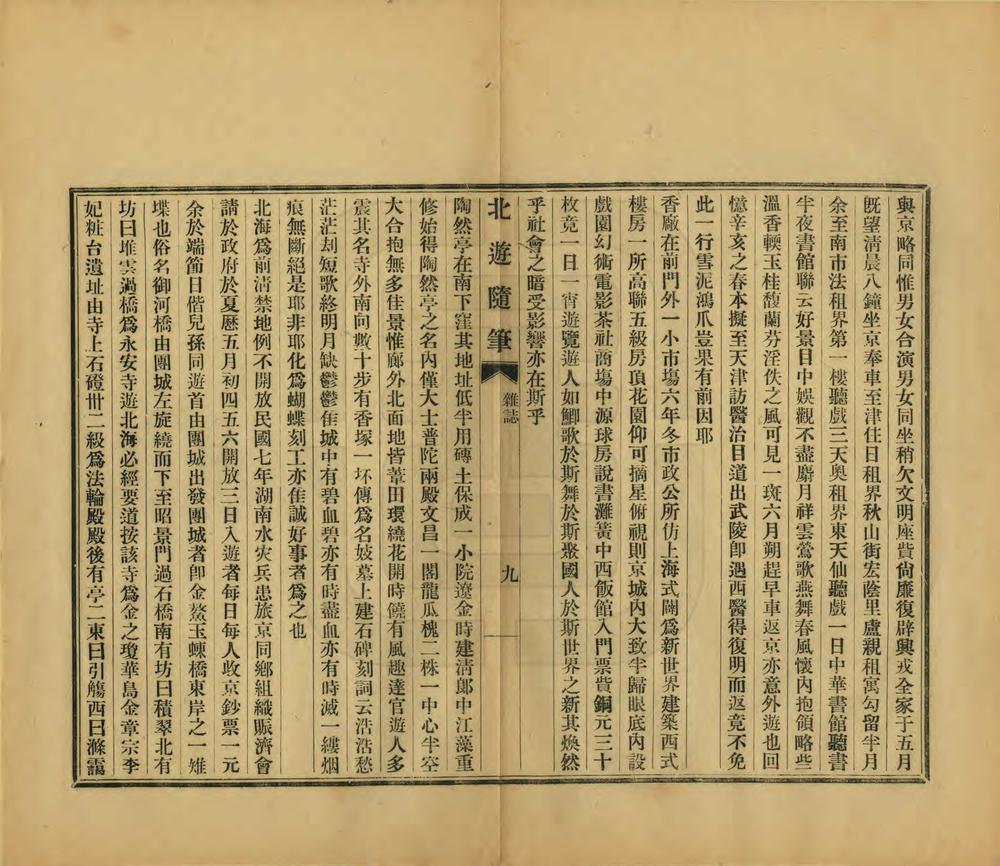 與京略同惟男女合演男女同坐稍欠文明座貲尙廉復辟興戎全家于五月
旣望淸晨八鐘坐京奉車至津住日租界秋山街宏蔭里盧親租寓勾留半月
余至南市法租界第一樓聽戲三天奥租界東天仙聽戲一日中華書館聽書
半夜書館聯云好景目中娛觀不盡麝月祥雲鶯歌燕舞春風懷內抱領略些
溫香輭玉桂馥蘭芬淫佚之風可見一斑六月朔趕早車返京亦意外遊也回
憶辛亥之春本擬至天津訪醫治目道出武陵卽遇西醫得復明而返竟不免
此一行雪泥鴻爪豈果有前因耶
香廠在前門外一小市塲六年冬市政公所仿上海式闢爲新世界建築西式
樓房一所高聯五級房頂花園仰可摘星俯視則京城內大致半歸眼底內設
戲園幻術電影茶社商塲中源球房說書灘黃中西飯館入門票貲銅元三十
枚竟一日一宵遊覽遊人如鯽歌於斯舞於斯聚國人於斯世界之新其煥然
乎社會之暗受影響亦在斯乎
北遊隨筆 雜誌 九
陶然亭在南下窪其地址低半用磚土保成一小院遼金時建淸鄭中江藻重
修始得陶然亭之名內僅大士普陀兩殿文昌一閣龍瓜槐二株一中心半空
大合抱無多佳景惟廊外北面地皆葦田環繞花開時僥有風趣達官遊人多
震其名寺外南向數十步有香塚一坏傳爲名妓墓上建石碑刻詞云浩浩愁
茫茫刦短歌終明月缺鬱鬱隹城中有碧血碧亦有時盡血亦有時滅一縷烟
痕無斷絕是耶非耶化爲蝴蝶刻工亦隹誠好事者爲之也
北海爲前淸禁地例不開放民國七年湖南水灾兵患旅京同鄕組織賑濟會
請於政府於夏曆五月初四五六開放三日入遊者每日每人收京鈔票一元
余於端節日偕兒孫同遊首由團城出發團城者卽金鰲玉蝀橋東岸之一雉
堞也俗名御河橋由團城左旋繞而下至昭景門過石橋南有坊曰積翠北有
坊曰堆雲過橋爲永安寺遊北海必經要道按該寺爲金之瓊華島金章宗李
妃粧台遺址由寺上石磴卅二級爲法輪殿殿後有亭二東曰引觴西曰滌靄